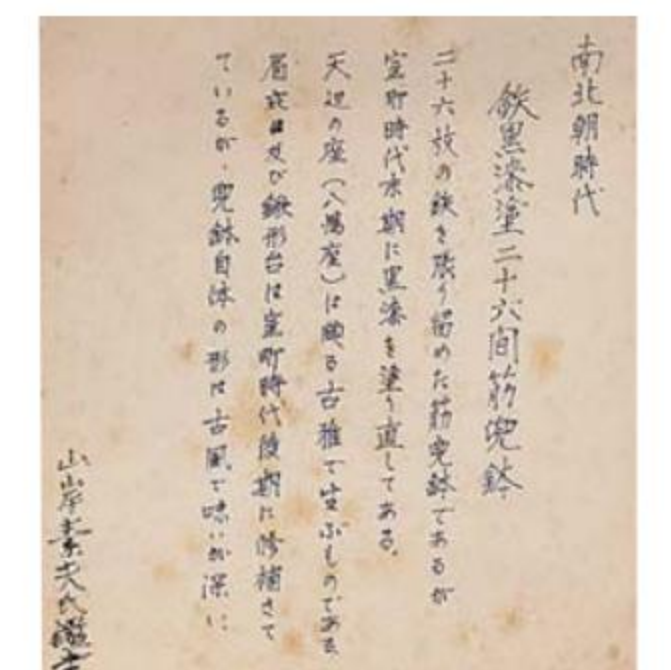 南北朝時代
鉄黒漆塗二十六間筋兜鉢
二十六枚の鉄を張り留めた筋兜鉢であるが
室町時代末期に黒漆を塗り直してある。
天辺の座（八幡座）は頗る古雅で生ぶものである
眉庇及び鍬形台は室町時代後期に修補されて
ているが、兜鉢自体の形は古風で味いが深い
山岸素夫氏鑑